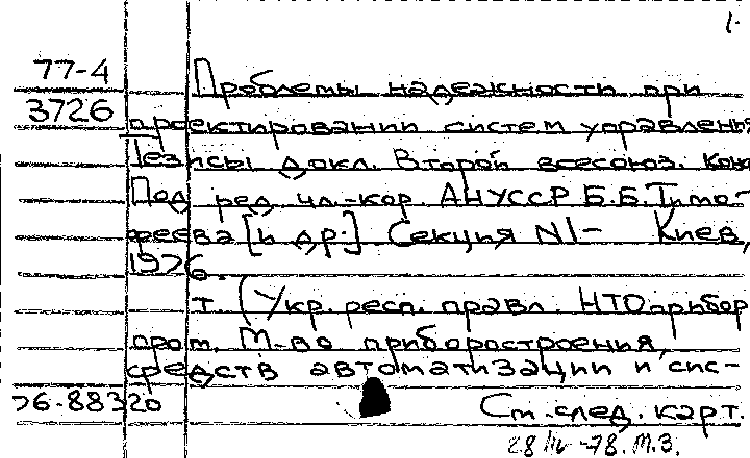 1-
77-4 Проблемы надежности при
3726 проектировании систем управлени
Тезисы докл. Второй всесоюз. кон
Под ред. чл.-кор. АН УССР Б.Б. Тимо-
феева [и др.] Секция N1- Киев,
1976.
т. (Укр. респ. правл. НТО прибор
пром. М-во приборостроения,
средств автоматизации и сис-
76-88320 См. след. карт.
28 -78. М.З.